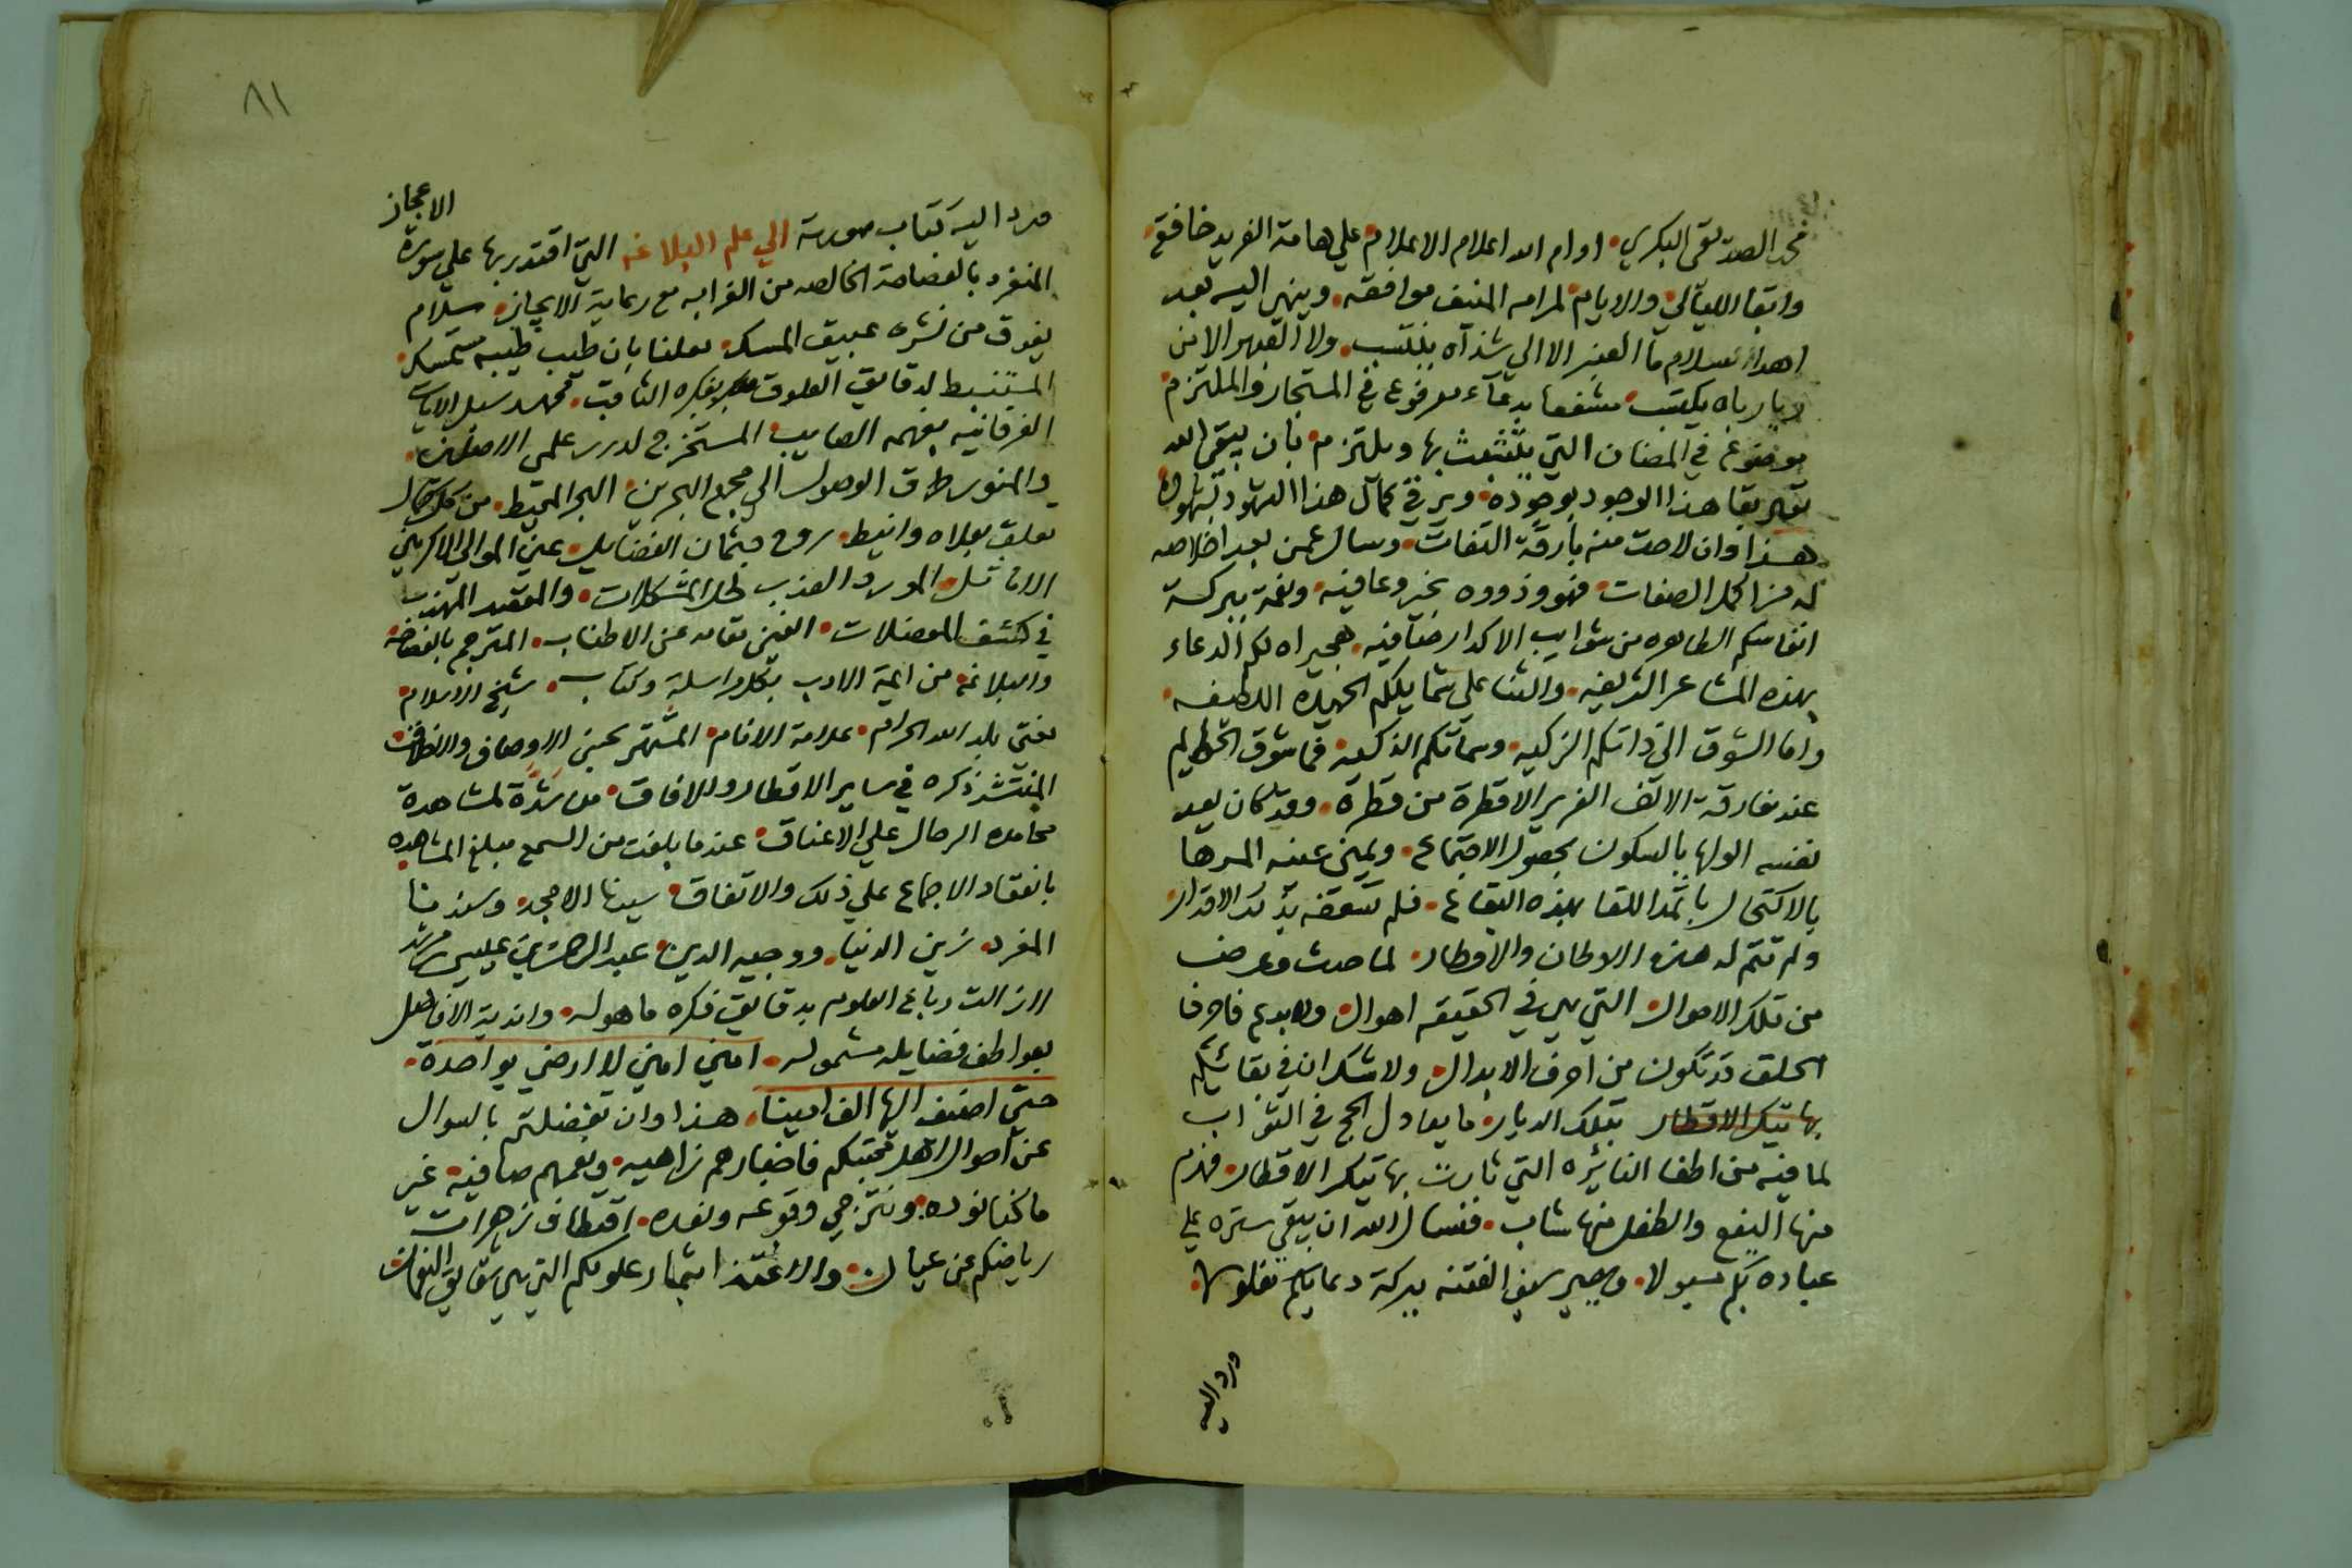 محمد الصديقي البكري • ادام الله اعلام الاعلام علي هامة الفريد خافقه
وابقا الليالي والايام لمرامه المنيف موافقه • وينهي اليه بعد
اهداء سلام ما العنبر الا الي شذاه ينتسب • ولا الزهر الا من
رياه يكتسب • مشفعا بدعاء مرفوع في المستجار والملتزم
موضوع في المضان التي يتشبث بها ويلتزم • بان يبقي الله
بقا هذا الوجود بوجوده • ويرقي كمال هذا الشهود بشهوده
هذا وان لاحت منه بارقة التفات • وسال عمن يعد اخلاصه
له من اكمل الصفات • فهو وذووه بخير وعافيه • ونعمة ببركة
انفاسكم الطاهره من شوايب الاكدار صافيه • هجيراه لكم الدعاء
بهذه المشاعر الشريفه • والثنا علي شمايلكم الحميده اللطيفه •
واما الشوق الي ذاتكم الزكيه • وسماتكم الذكيه • فما شوق الخطيم
عند مفارقة الالف الغرير الا قطرة من قطره • وقد كان يعد
نفسه الولها بالسكون بحصول الاجتماع • ويمني عينه المرها
بالاكتحال باثمد اللقا بهذه البقاع • فلم تسعفه بذلك الاقدار
ولم تتم له هذه الاوطان والاوطار • لما حدث وعرض
من تلك الاحوال التي هي في الحقيقه اهوال • ولا بدع فاحرف
الحلق قد تكون من احرف الابدال • ولا شك ان في بقائكم
بهاتيك الاقطار بتلك الديار • ما يعادل الحج في الثواب
لما فيه من اطفا النائره التي ثارت بهاتيك الاقطار • فهرم
منها اليفع والطفل منها شاب • فنسال الله ان يبقي ستره علي
عباده بكم مسبولا • ويصير سيف الفتنه ببركة دعايكم مفلولا •
ورد اليه
٨١
ورد اليه كتاب صورته الي علم البلاغه التي اقتدر بها علي سورة الاعجاز
المنفرد بالفصاحة الخالصه من الغرابه مع رعاية الايجاز • سلام
يفوق من نشره عبيق المسك • معلنا بان طيب طيبه مستمسك •
المستنبط لدقايق العلوم بفكره الثاقب • ممهد سبل الايات
الفرقانيه بفهمه الصايب • المستخرج لدرر علمي الاصلين •
والمتوسط ق الوصول الي مجمع البحرين • البحر المحيط • من كل كمال
تعلق بعلاه وانيط • روح جثمان الفضايل • عين الموالي الاكرمين
الاماثل • المورد العذب لحل المشكلات • والمقيد المهذب
في كشف المعضلات • الغني مقامه عن الاطناب • المترجم بالفصاحه
والبلاغه من ايمة الادب بكل مراسلة وكتاب • شيخ الاسلام
مفتي بلد الله الحرام • علامة الانام • المشتهر بحسن الاوصاف والاخلاق
المنتشر ذكره في ساير الاقطار والافاق • من شدة لمشاهدة
محامده الرحال علي الاعناق • عندما بلغت من السمع مبلغ المشاهده
بانعقاد الاجماع علي ذلك والاتفاق • سيدنا الامجد • وسندنا
المفرد • زين الدنيا • ووجيه الدين • عبد الرحمن بن عيسي مرشد
لازالت رباع العلوم بدقايق فكره ماهوله • واندية الافاضل
بعواطف فضايله مشموله • امين امين لا ارضي بواحدة •
حتي اضيف اليها الف امينا • هذا وان تفضلتم بالسوال
عن احوال اهل محبتكم فاخبارهم زاهيه • ونعمهم صافيه • غير
ما كنا نوده • ونترجي وقوعه ونعده • اقتطاف زهرات
رياضكم عن عيان • والاغتذا بثمار علومكم التي هي شقايق النعمان